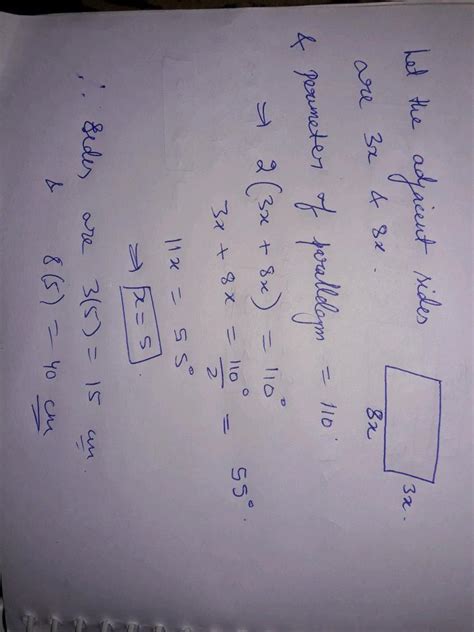 Let the adjacent sides
are 3x & 8x.
3x.
8x
& perimeter of parallelogm = 110°
⇒ 2(3x + 8x) = 110°
3x + 8x = 110°/2 = 55°.
11x = 55°
⇒ x = 5.
∴ sides are 3(5) = 15 cm.
& 8(5) = 40 cm